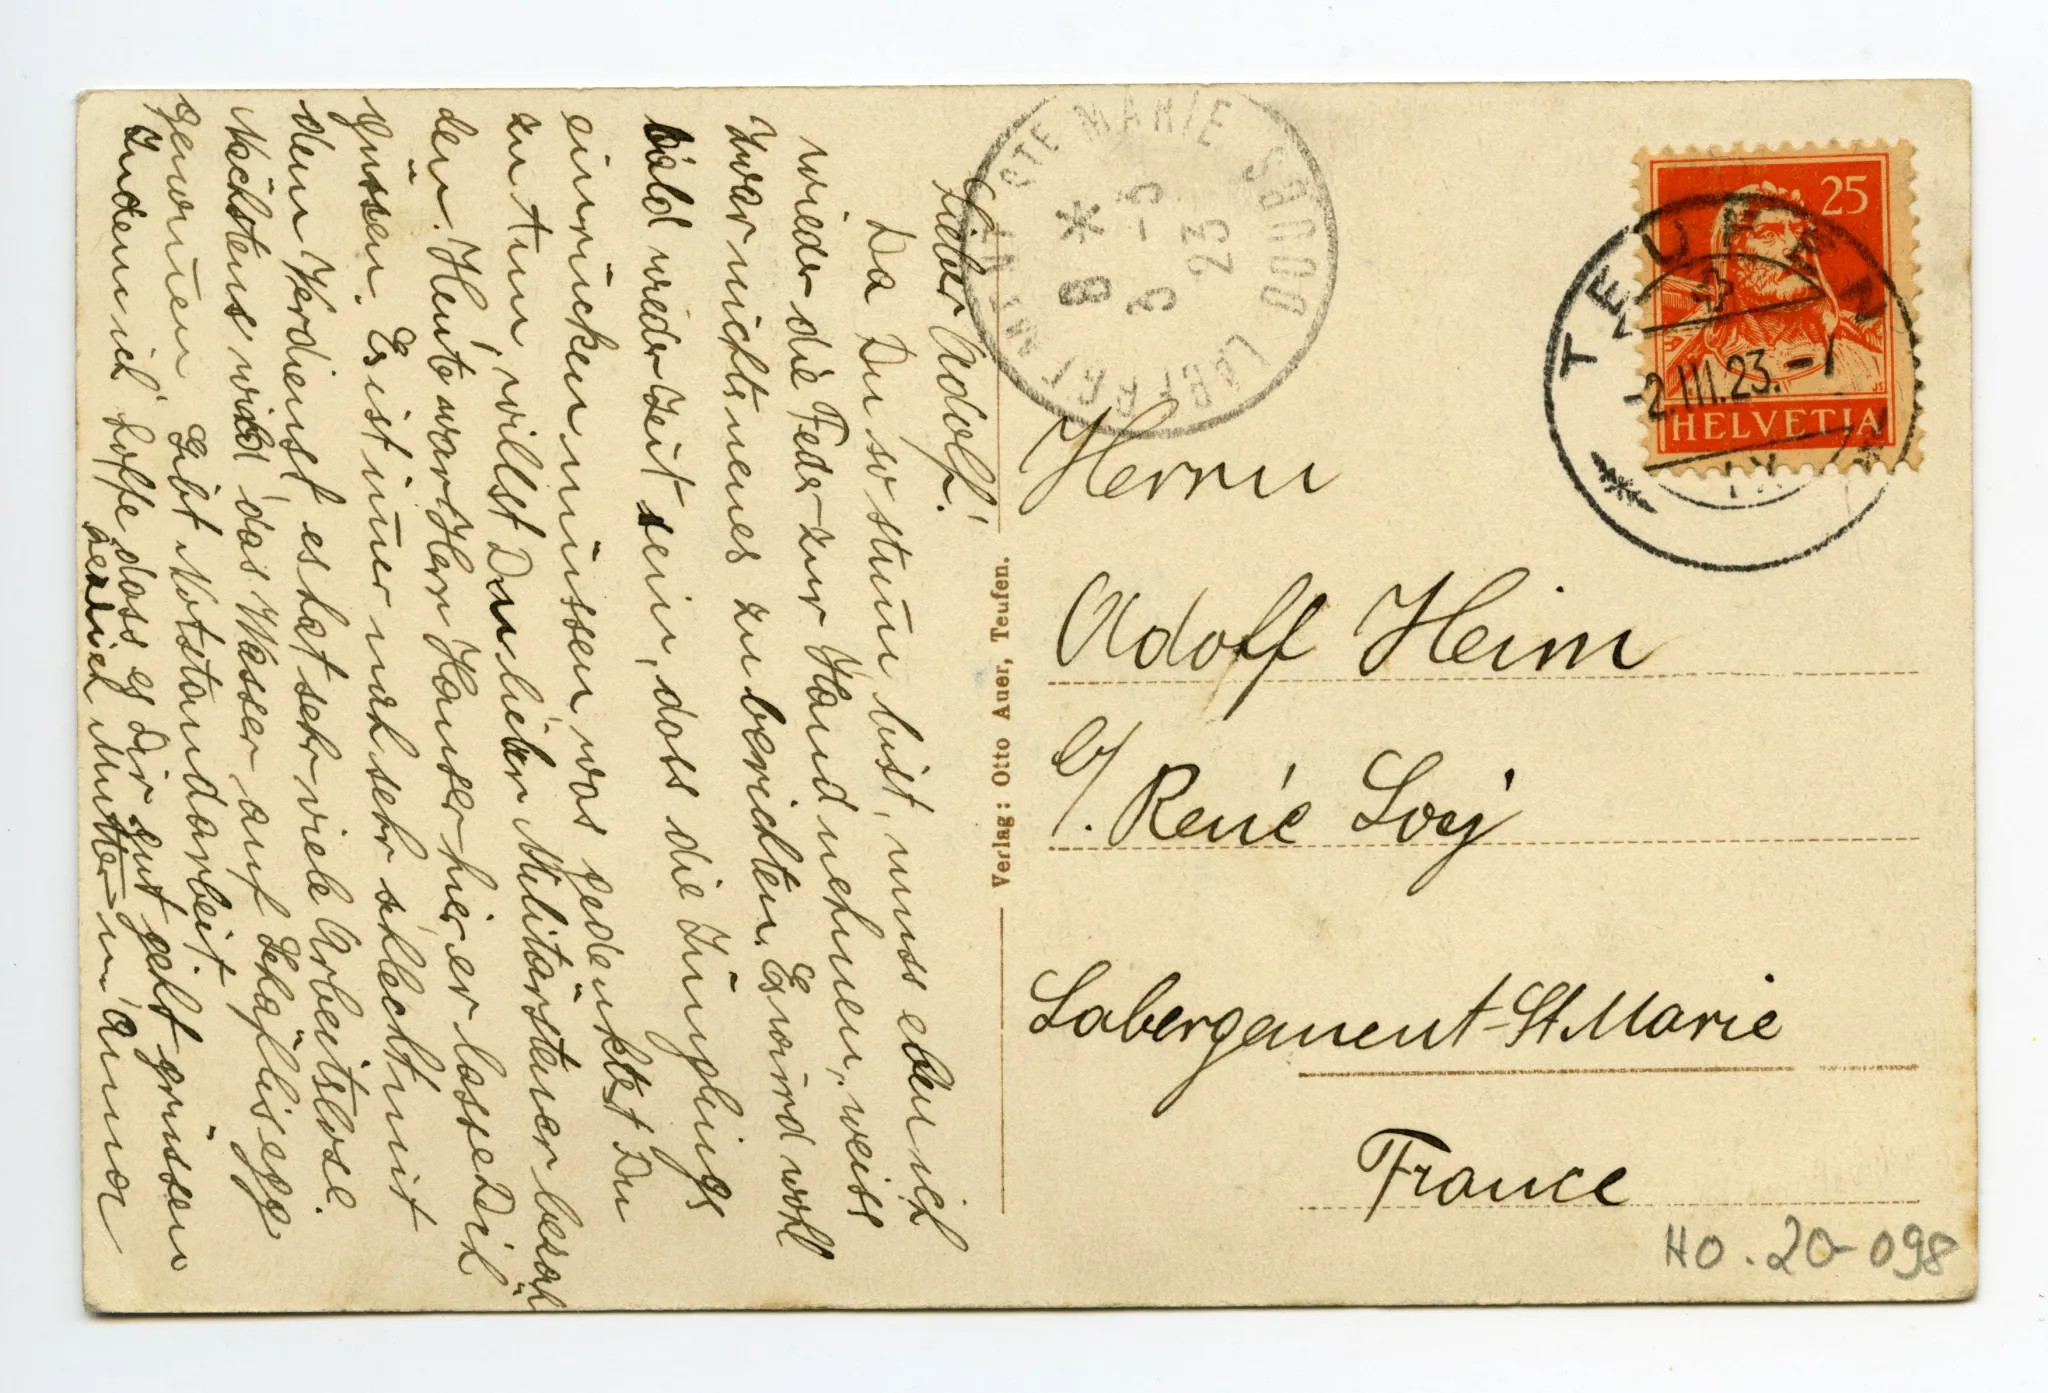 Lieber Adolf!
Da Du so stum̄ bist, muss eben ich
wieder die Feder zur Hand nehmen, weiss
zwar nichts neues zu berichten. Es wird wohl
bald wieder Zeit sein, dass die Jünglings
einrücken müssen, was gedenkst Du
zu tun, willst Du lieber Militärsteuer bezah
len. Heute war Herr Hauser hier er lasse Dich
grüssen. Es ist im̄er noch sehr schlecht mit
dem Verdienst es hat sehr viele Arbeitslose.
Nächstens wird das Wasser auf Schäflisegg
genom̄en, Gibt Notstandarbeit.
Indem ich hoffe, dass es Dir gut geht grüssen
herzlich Mutter u. Anna
Verlag: Otto Auer, Teufen.
Herrn
Adolf Heim
b/. René Loy
Labergement-St Marie
France
HO.20-098
25
HELVETIA
TEUFEN
-2.III.23.-7
LABERGEMENT STE MARIE DOUBS
8 *
3 -3
23